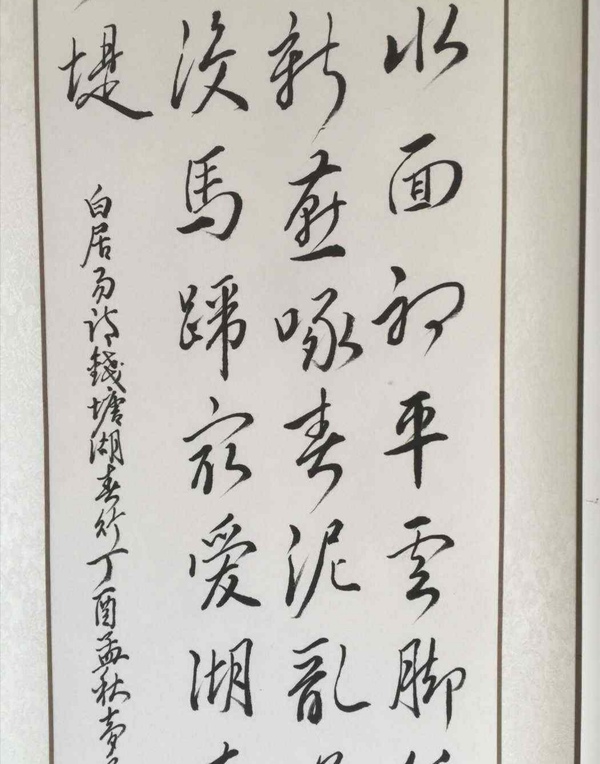 水面初平雲脚
新燕啄春泥亂
没馬蹄最愛湖
堤
白居易詩錢塘湖春行丁酉孟秋